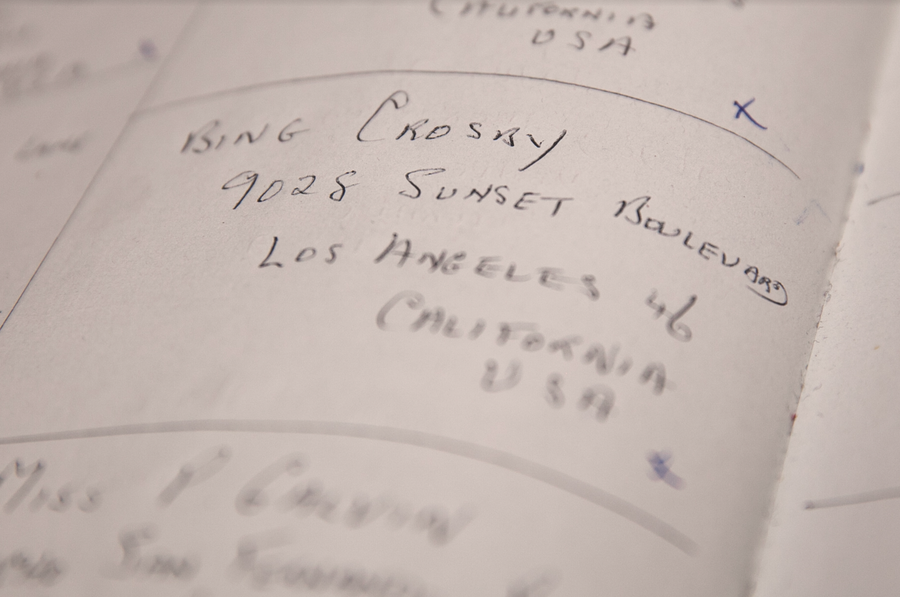 CALIFORNIA
USA
X
BING CROSBY
9028 SUNSET BOULEVARD
LOS ANGELES 46
CALIFORNIA
USA
X
MISS P CALVIN